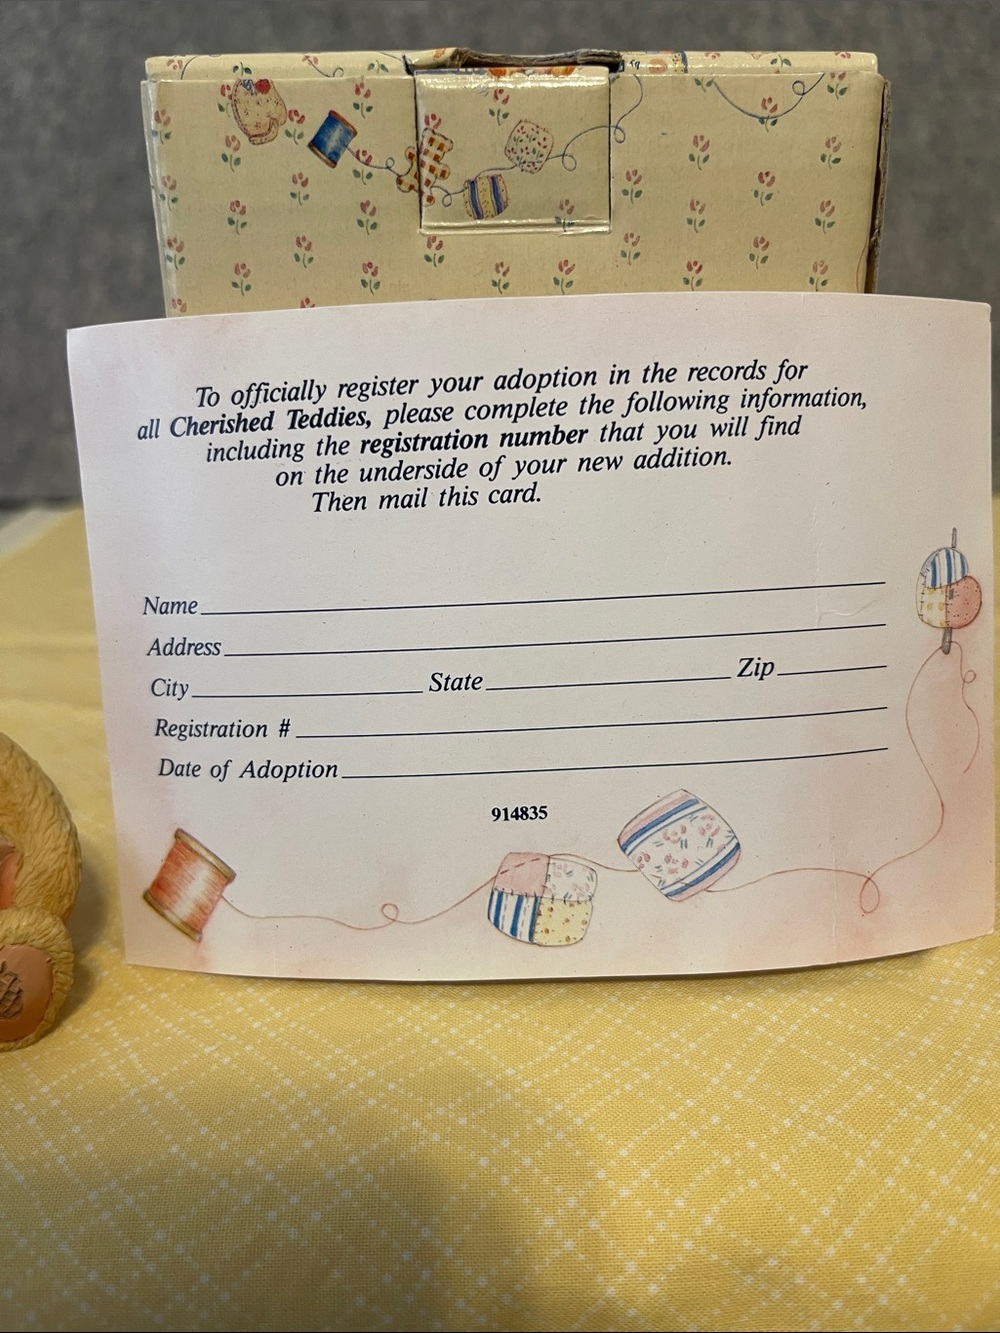 To officially register your adoption in the records for
all Cherished Teddies, please complete the following information,
including the registration number that you will find
on the underside of your new addition.
Then mail this card.
Name
Address
City State Zip
Registration #
Date of Adoption
914835